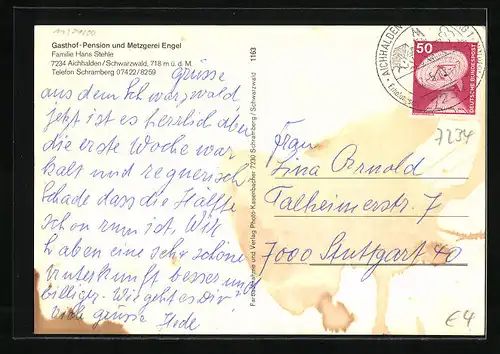 Gasthof-Pension und Metzgerei Engel
Familie Hans Stehle
7234 Aichhalden/Schwarzwald, 718 m ü. d. M.
Telefon Schramberg 07422/8259
Grüsse
aus dem Schwarzwald
jetzt ist es herrlich aber
die erste Woche war
kalt und regnerisch
Schade dass die Hälfte
schon rum ist. Wir
haben eine sehr schöne
Unterkunft besser und
billiger. Wie geht es Dir
viele grüsse Hede
1163
Farbaufnahme und Verlag Photo Kasenbacher 7230 Schramberg/Schwarzwald
AICHHALDEN
50
DEUTSCHE BUNDESPOST
7234
Frau
Lina Arnold
Talheimerstr. 7
7000 Stuttgart 40
€4